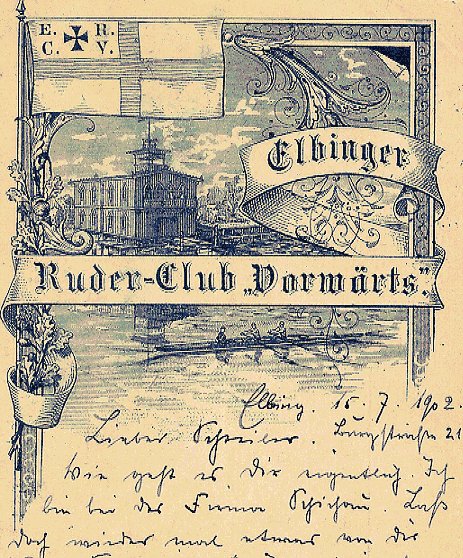 E. R.
C. V.
Elbinger
Ruder-Club „Vorwärts."
Elbing. 15. 7. 1902.
Lieber Schreiber. Burgstraße 21
Wie geht es Dir eigentlich. Ich
bin bei der Firma Schichau. Laß
doch wieder mal etwas von dir